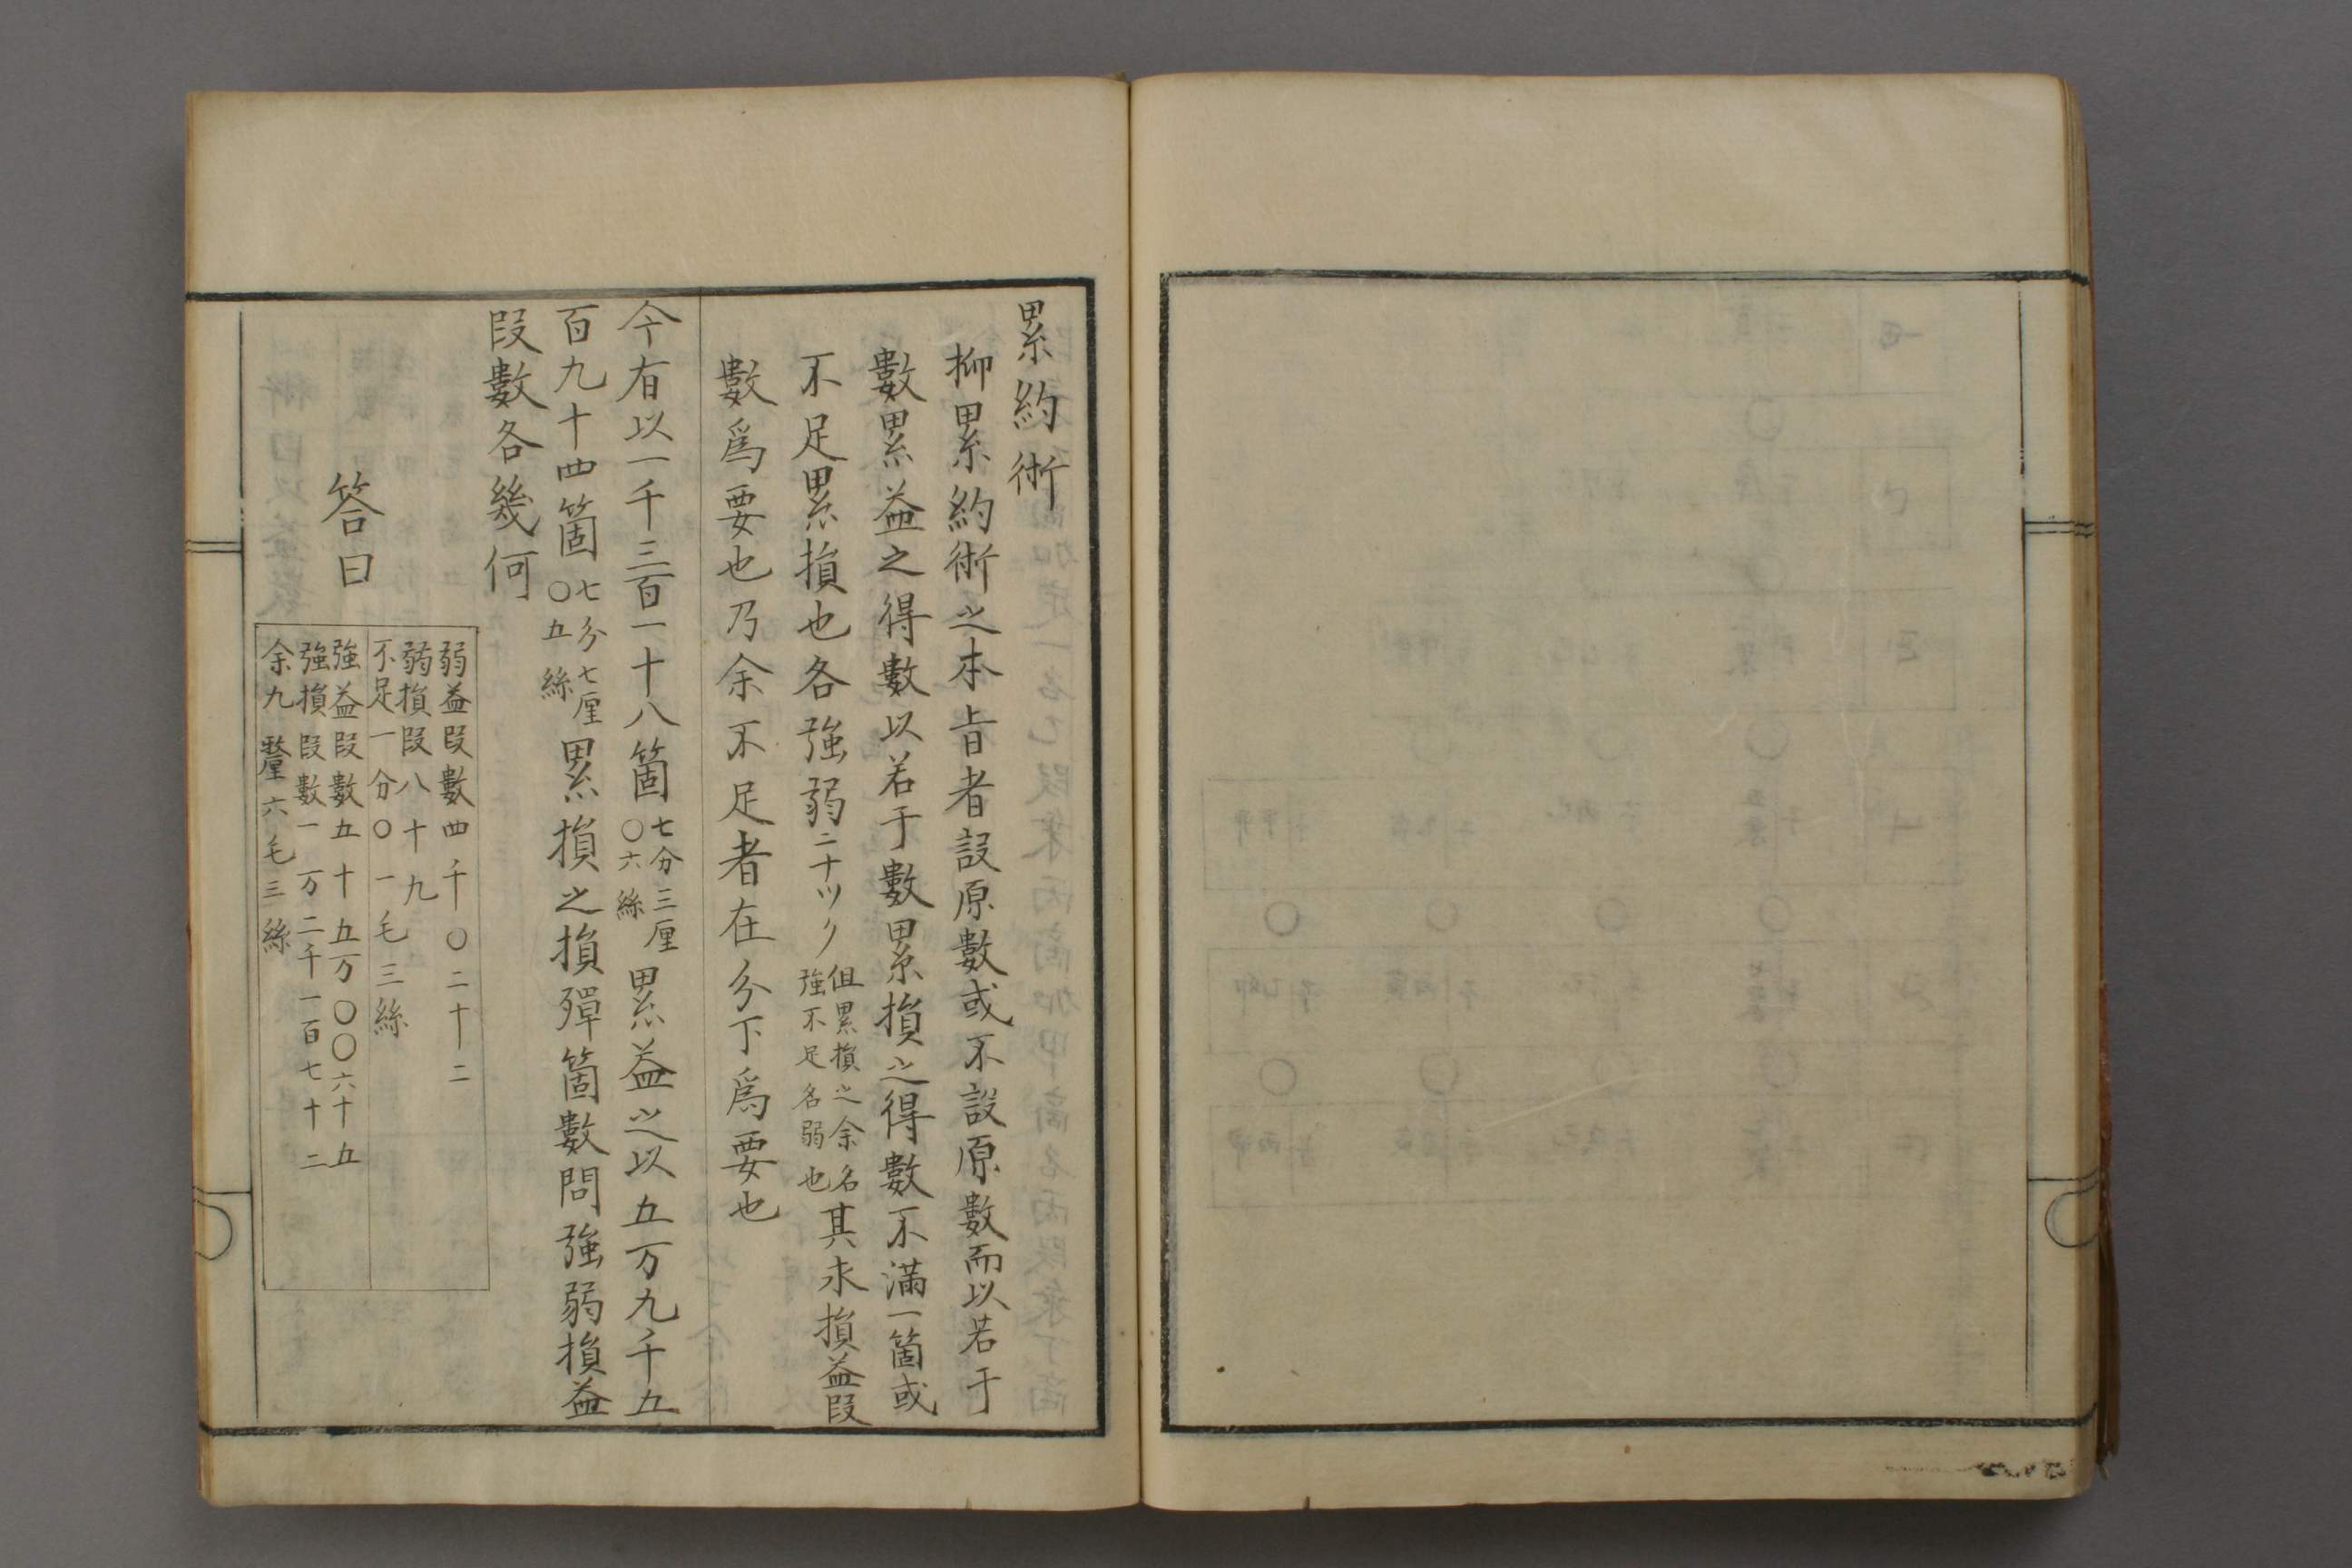 累約術
抑累約術之本旨者設原數或不設原數而以若于
數累益之得數以若于數累損之得數不滿一箇或
不足累損也各強弱ニナツク但累損之余名強不足名弱也其求損益段
數爲要也乃余不足者在分下爲要也
今有以一千三百一十八箇七分三厘〇六絲累益之以五万九千五
百九十四箇七分七厘〇五絲累損之損殫箇數問強弱損益
段數各幾何
答曰
弱益段數四千〇二十二
弱損段八十九
不足一分〇一毛三絲
強益段數五十五万〇〇六十五
強損段數一万二千一百七十二
余九釐六毛三絲